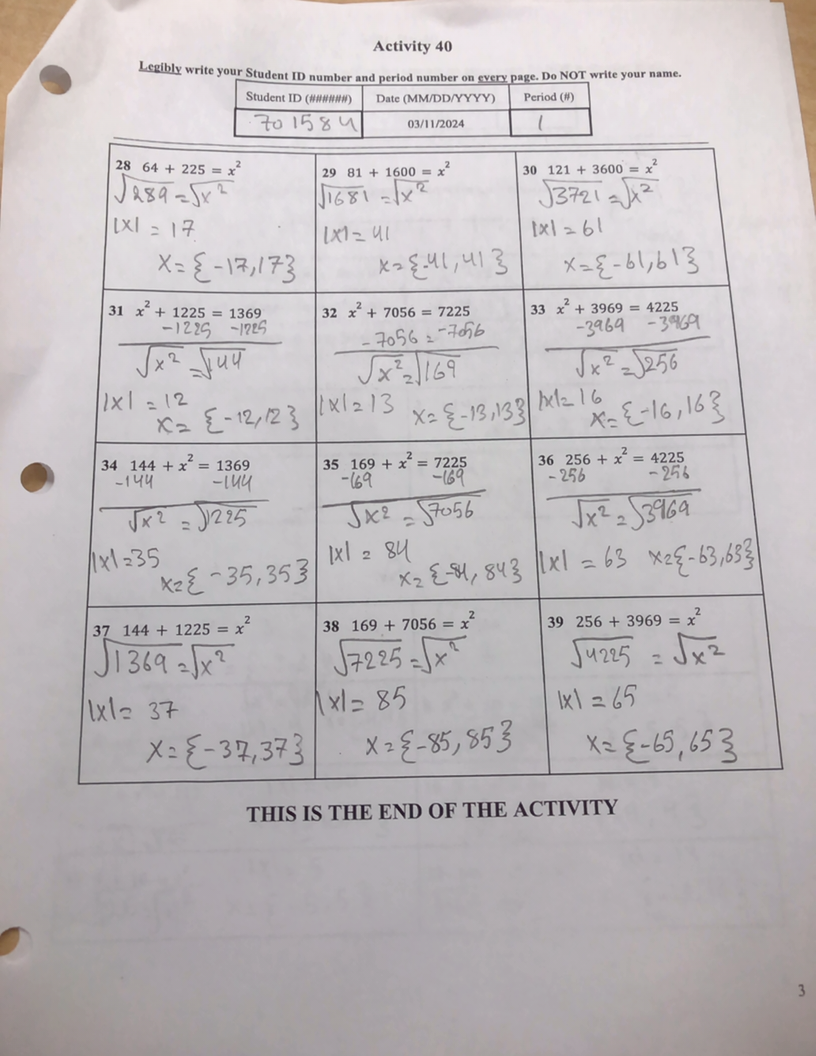 Activity 40
Legibly write your Student ID number and period number on every page. Do NOT write your name.
Student ID (######) Date (MM/DD/YYYY) Period (#)
701584 03/11/2024 1
28 64 + 225 = x²
√289 = √x²
|x| = 17
x = {-17, 17}
29 81 + 1600 = x²
√1681 = √x²
|x| = 41
x = {-41, 41}
30 121 + 3600 = x²
√3721 = √x²
|x| = 61
x = {-61, 61}
31 x² + 1225 = 1369
-1225 -1225
√x² = √144
|x| = 12
x = {-12, 12}
32 x² + 7056 = 7225
-7056 = -7056
√x² = √169
|x| = 13 x = {-13, 13}
33 x² + 3969 = 4225
-3969 -3969
√x² = √256
|x| = 16
x = {-16, 16}
34 144 + x² = 1369
-144 -144
√x² = √1225
|x| = 35
x = {-35, 35}
35 169 + x² = 7225
-169 -169
√x² = √7056
|x| = 84
x = {-84, 84}
36 256 + x² = 4225
-256 -256
√x² = √3969
|x| = 63 x = {-63, 63}
37 144 + 1225 = x²
√1369 = √x²
|x| = 37
x = {-37, 37}
38 169 + 7056 = x²
√7225 = √x²
|x| = 85
x = {-85, 85}
39 256 + 3969 = x²
√4225 = √x²
|x| = 65
x = {-65, 65}
THIS IS THE END OF THE ACTIVITY
3